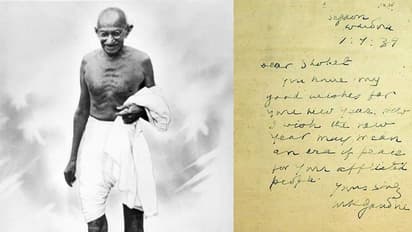 Segaon
Wardha
1.9.39
Dear Shohet
You have my
good wishes for
your new year. How
I wish the new
year may mean
an era of peace
for your afflicted
people.
Yours sincy
MKGandhi